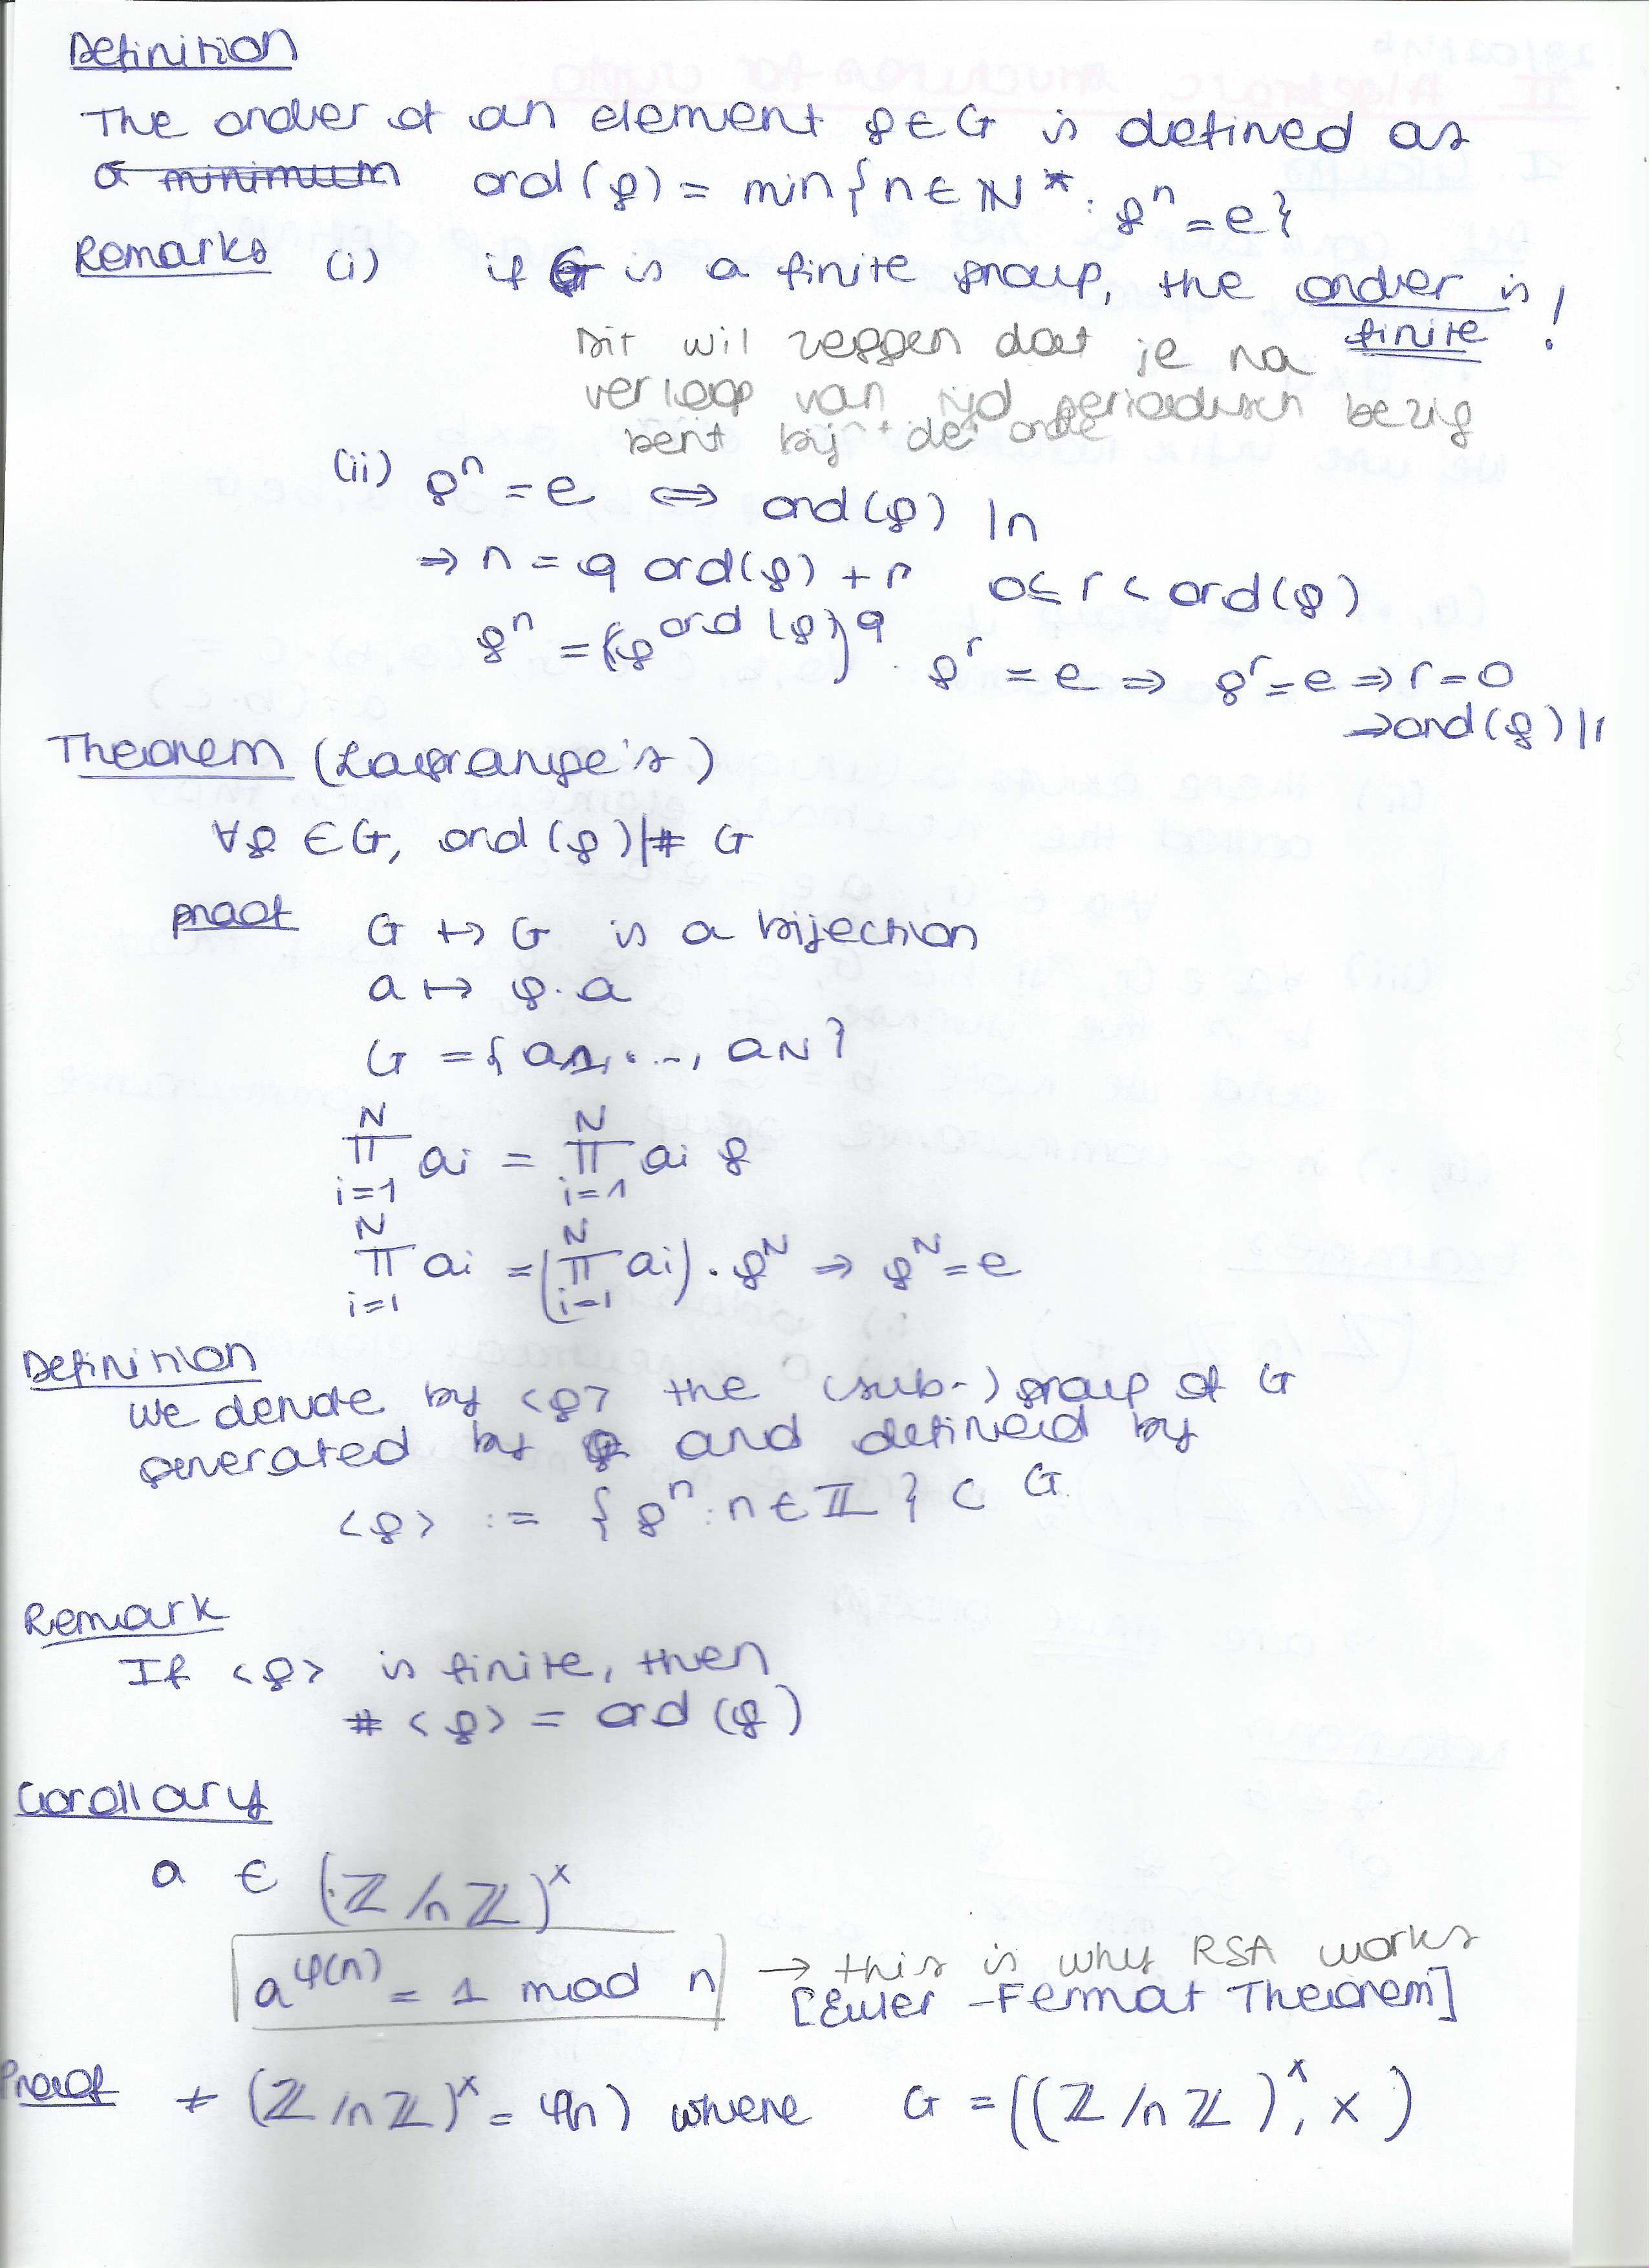 Definition
The order of an element g ∈ G is defined as
a minimum ord(g) = min{n ∈ ℕ* : gⁿ = e}
Remarks (i) if G is a finite group, the order is finite !
Dit wil zeggen dat je na
verloop van tijd periodisch bezig
bent bij de orde
(ii) gⁿ = e ⇔ ord(g) | n
⇒ n = q ord(g) + r 0 ≤ r < ord(g)
gⁿ = (g^ord(g))^q · g^r = e ⇒ g^r = e ⇒ r = 0
⇒ ord(g) | n
Theorem (Lagrange's)
∀g ∈ G, ord(g) | # G
proof G ↦ G is a bijection
a ↦ g · a
G = {a1, ..., aN}
∏_{i=1}^{N} ai = ∏_{i=1}^{N} ai g
∏_{i=1}^{N} ai = (∏_{i=1}^{N} ai) · g^N ⇒ g^N = e
Definition
We denote by <g> the (sub-)group of G
generated by g and defined by
<g> := {gⁿ : n ∈ ℤ} ⊂ G
Remark
If <g> is finite, then
# <g> = ord(g)
Corollary
a ∈ (ℤ/nℤ)^x
a^φ(n) = 1 mod n → this is why RSA works
[Euler-Fermat Theorem]
Proof # (ℤ/nℤ)^x = φ(n) where G = ((ℤ/nℤ)^x, x)